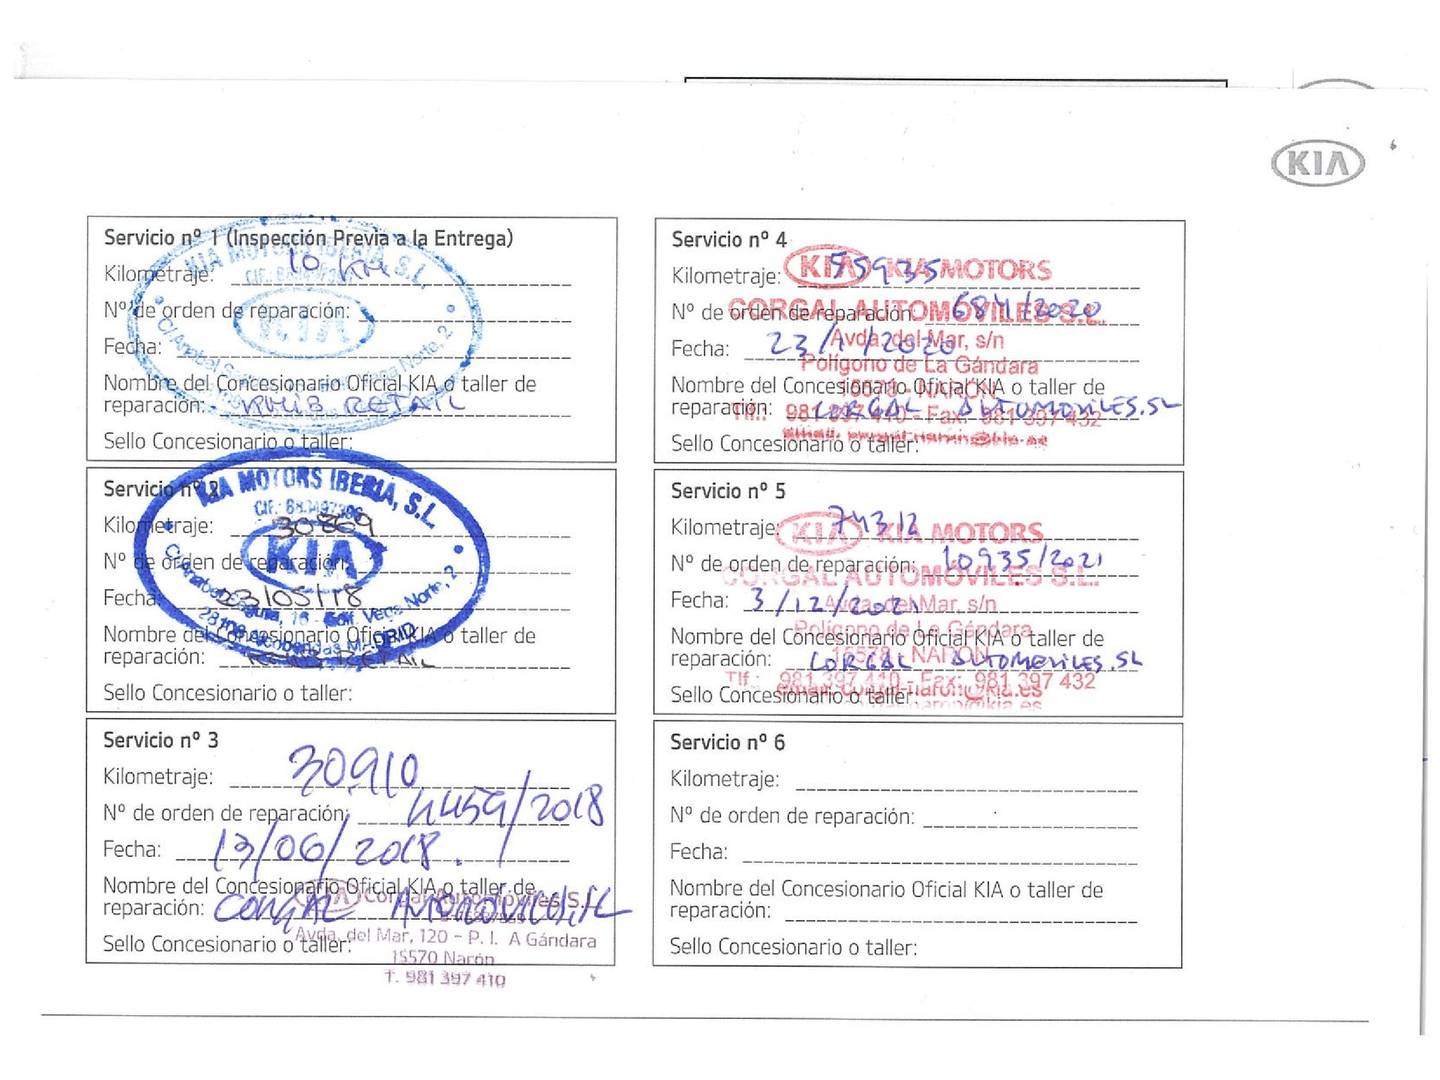 KIA
Servicio nº 1 (Inspección Previa a la Entrega)
Kilometraje: 10 KM
Nº de orden de reparación:
Fecha:
Nombre del Concesionario Oficial KIA o taller de
reparación: KMIB RETAIL
Sello Concesionario o taller:
KIA MOTORS IBERIA, S.L.
KIA
Servicio nº 2
Kilometraje: 30869
Nº de orden de reparación:
Fecha: 23/05/18
Nombre del Concesionario Oficial KIA o taller de
reparación: KMIB RETAIL
Sello Concesionario o taller:
KIA MOTORS IBERIA, S.L.
KIA
28108 Alcobendas MADRID
Servicio nº 3
Kilometraje: 30.910
Nº de orden de reparación: 4459/2018
Fecha: 13/06/2018.
Nombre del Concesionario Oficial KIA o taller de
reparación: CORGAL AUTOMÓVILES, SL
Sello Concesionario o taller:
KIA Corgal Automóviles S.L.
Avda. del Mar, 120 - P. I. A Gándara
15570 Narón
T. 981 397 410
Servicio nº 4
Kilometraje: 55935
Nº de orden de reparación:
Fecha: 23/1/2020
Nombre del Concesionario Oficial KIA o taller de
reparación: CORGAL AUTOMOVILES.SL
Sello Concesionario o taller:
KIA KIA MOTORS
CORGAL AUTOMÓVILES S.L.
Avda. del Mar, s/n
Polígono de La Gándara
15578 - NARÓN
Tlf.: 981 397 410 - Fax: 981 397 432
Servicio nº 5
Kilometraje: 74312
Nº de orden de reparación: 10935/2021
Fecha: 3/12/2021
Nombre del Concesionario Oficial KIA o taller de
reparación: CORGAL AUTOMOVILES.SL
Sello Concesionario o taller:
KIA KIA MOTORS
CORGAL AUTOMÓVILES S.L.
Avda. del Mar, s/n
Polígono de La Gándara
15578 - NARÓN
Tlf.: 981 397 410 - Fax: 981 397 432
email: corgal-naron@kia.es
Servicio nº 6
Kilometraje:
Nº de orden de reparación:
Fecha:
Nombre del Concesionario Oficial KIA o taller de
reparación:
Sello Concesionario o taller: